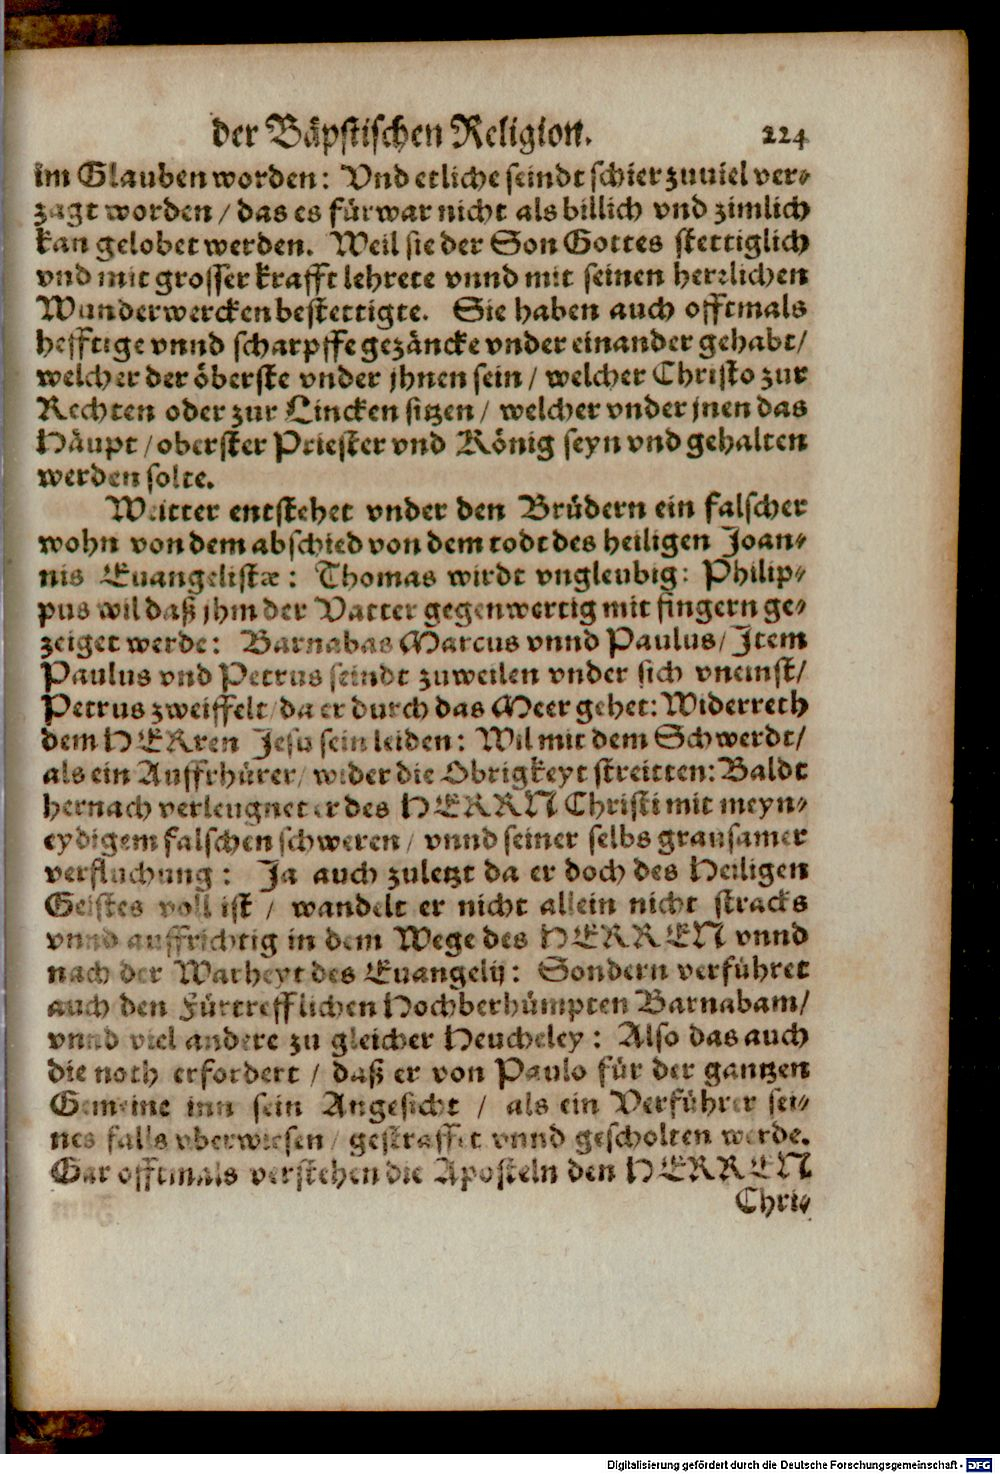 der Bäpstischen Religion. 224
im Glauben worden: Vnd etliche seindt schier zuuiel ver-
zagt worden / das es fürwar nicht als billich vnd zimlich
kan gelobet werden. Weil sie der Son Gottes stettiglich
vnd mit grosser krafft lehrete vnnd mit seinen herrlichen
Wunderwercken bestettigte. Sie haben auch offtmals
hefftige vnnd scharpffe gezäncke vnder einander gehabt/
welcher der öberste vnder jhnen sein / welcher Christo zur
Rechten oder zur Lincken sitzen / welcher vnder jnen das
Häupt / oberster Priester vnd König seyn vnd gehalten
werden solte.
Weitter entstehet vnder den Brüdern ein falscher
wohn von dem abschied von dem todt des heiligen Joan-
nis Euangelistæ: Thomas wirdt vngleubig: Philip-
pus wil daß jhm der Vatter gegenwertig mit fingern ge-
zeiget werde: Barnabas Marcus vnnd Paulus/ Item
Paulus vnd Petrus seindt zuweilen vnder sich vneinst/
Petrus zweiffelt/ da er durch das Meer gehet: Widerreth
dem HERren Jesu sein leiden: Wil mit dem Schwerdt/
als ein Auffrhürer/ wider die Obrigkeyt streitten: Baldt
hernach verleugnet er des HERRN Christi mit meyn-
eydigem falschen schweren / vnnd seiner selbs grausamer
verfluchung: Ja auch zuletzt da er doch des Heiligen
Geistes voll ist / wandelt er nicht allein nicht stracks
vnnd auffrichtig in dem Wege des HERREN vnnd
nach der Warheyt des Euangelij: Sondern verführet
auch den Fürtrefflichen Hochberhümpten Barnabam/
vnnd viel andere zu gleicher Heucheley: Also das auch
die noth erfordert / daß er von Paulo für der gantzen
Gemeine inn sein Angesicht / als ein Verführer sei-
nes falls vberwiesen / gestraffet vnnd gescholten werde.
Gar offtmals verstehen die Aposteln den HERREN
Chri-
Digitalisierung gefördert durch die Deutsche Forschungsgemeinschaft - DFG